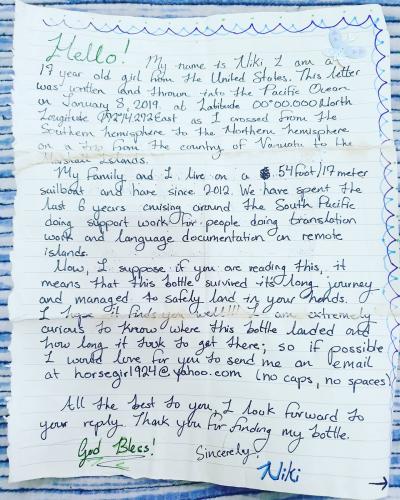 Hello! My name is Niki I am a
19 year old girl from the United States. This letter
was written and thrown into the Pacific Ocean
on January 8, 2019. at Latitude 00°00.000 North
Longitude East as I crossed from the
Southern hemisphere to the Northern hemisphere
on a trip from the country of Vanuatu to the
Marshall Islands.
My family and I live on a 54 foot/17 meter
sailboat and have since 2012. We have spent the
last 6 years cruising around the South Pacific
doing support work for people doing translation
work and language documentation on remote
islands.
Now, I suppose if you are reading this, it
means that this bottle survived its long journey
and managed to safely land in your hands.
I hope it finds you well!!! I am extremely
curious to know where this bottle landed and
how long it took to get there; so if possible
I would love for you to send me an email
at horsegirl924@yahoo.com (no caps, no spaces)
All the best to you, I look forward to
your reply. Thank you for finding my bottle.
God Bless! Sincerely,
Niki